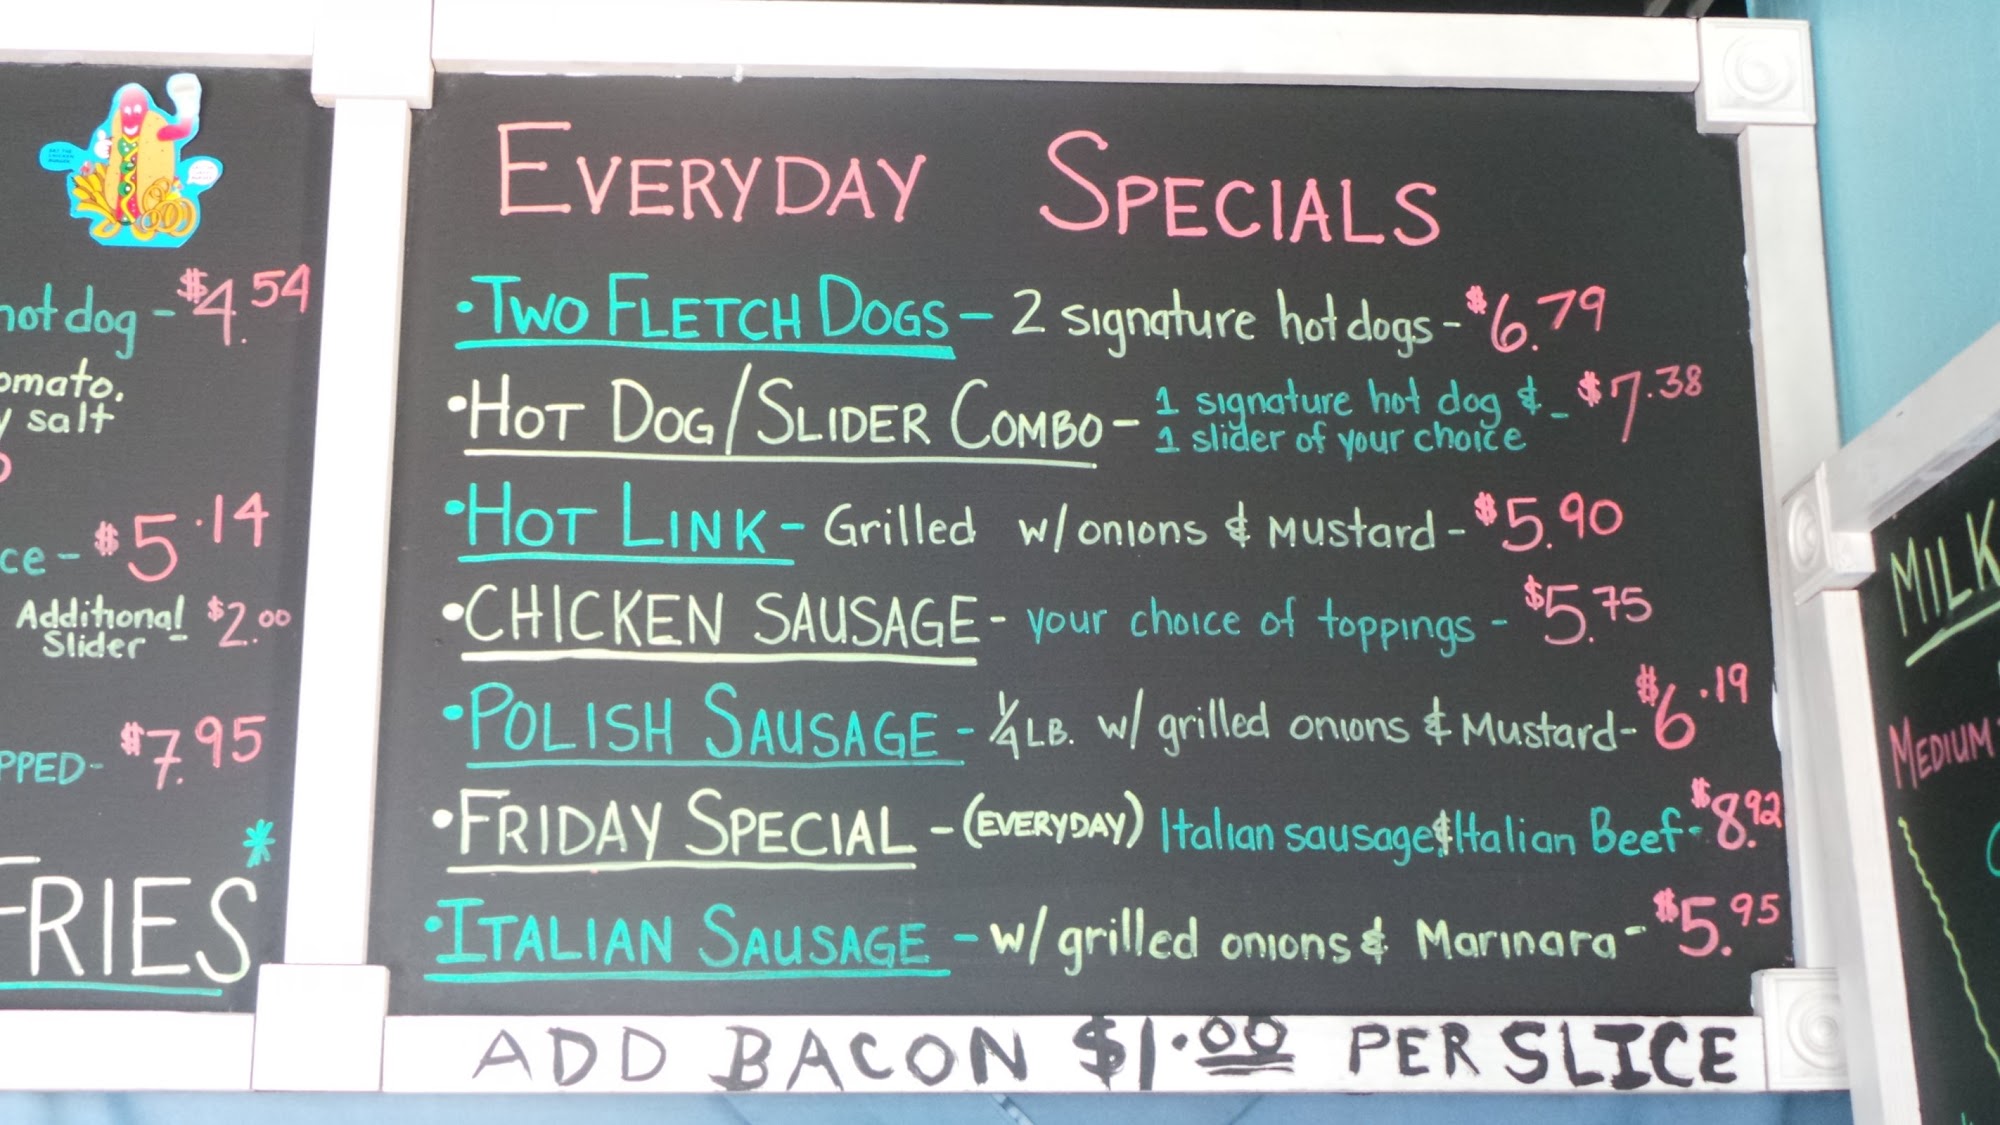 hot dog - $4.54
omato,
y salt
ce - $5.14
Additional Slider - $2.00
PPED - $7.95
FRIES*
EVERYDAY SPECIALS
• TWO FLETCH DOGS - 2 signature hot dogs - $6.79
• HOT DOG/SLIDER COMBO - 1 signature hot dog & 1 slider of your choice - $7.38
• HOT LINK - Grilled w/ onions & Mustard - $5.90
• CHICKEN SAUSAGE - your choice of toppings - $5.75
• POLISH SAUSAGE - 1/4 LB. w/ grilled onions & Mustard - $6.19
• FRIDAY SPECIAL - (EVERYDAY) Italian sausage & Italian Beef - $8.92
• ITALIAN SAUSAGE - w/ grilled onions & Marinara - $5.95
ADD BACON $1.00 PER SLICE
MILK
MEDIUM